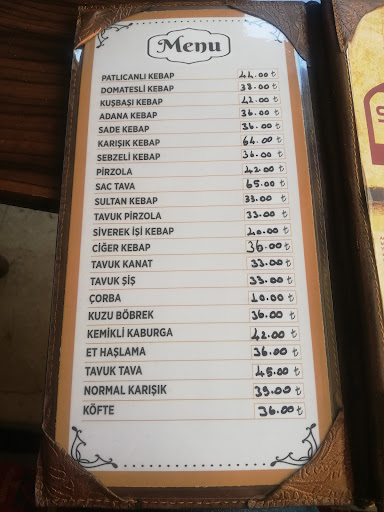 Menu
PATLICANLI KEBAP 44.00 ₺
DOMATESLİ KEBAP 33.00 ₺
KUŞBAŞI KEBAP 42.00 ₺
ADANA KEBAP 36.00 ₺
SADE KEBAP 36.00 ₺
KARIŞIK KEBAP 64.00 ₺
SEBZELİ KEBAP 36.00 ₺
PİRZOLA 42.00 ₺
SAC TAVA 65.00 ₺
SULTAN KEBAP 33.00 ₺
TAVUK PİRZOLA 33.00 ₺
SİVEREK İŞİ KEBAP 40.00 ₺
CİĞER KEBAP 36.00 ₺
TAVUK KANAT 33.00 ₺
TAVUK ŞİŞ 33.00 ₺
ÇORBA 10.00 ₺
KUZU BÖBREK 36.00 ₺
KEMİKLİ KABURGA 42.00 ₺
ET HAŞLAMA 36.00 ₺
TAVUK TAVA 45.00 ₺
NORMAL KARIŞIK 39.00 ₺
KÖFTE 36.00 ₺